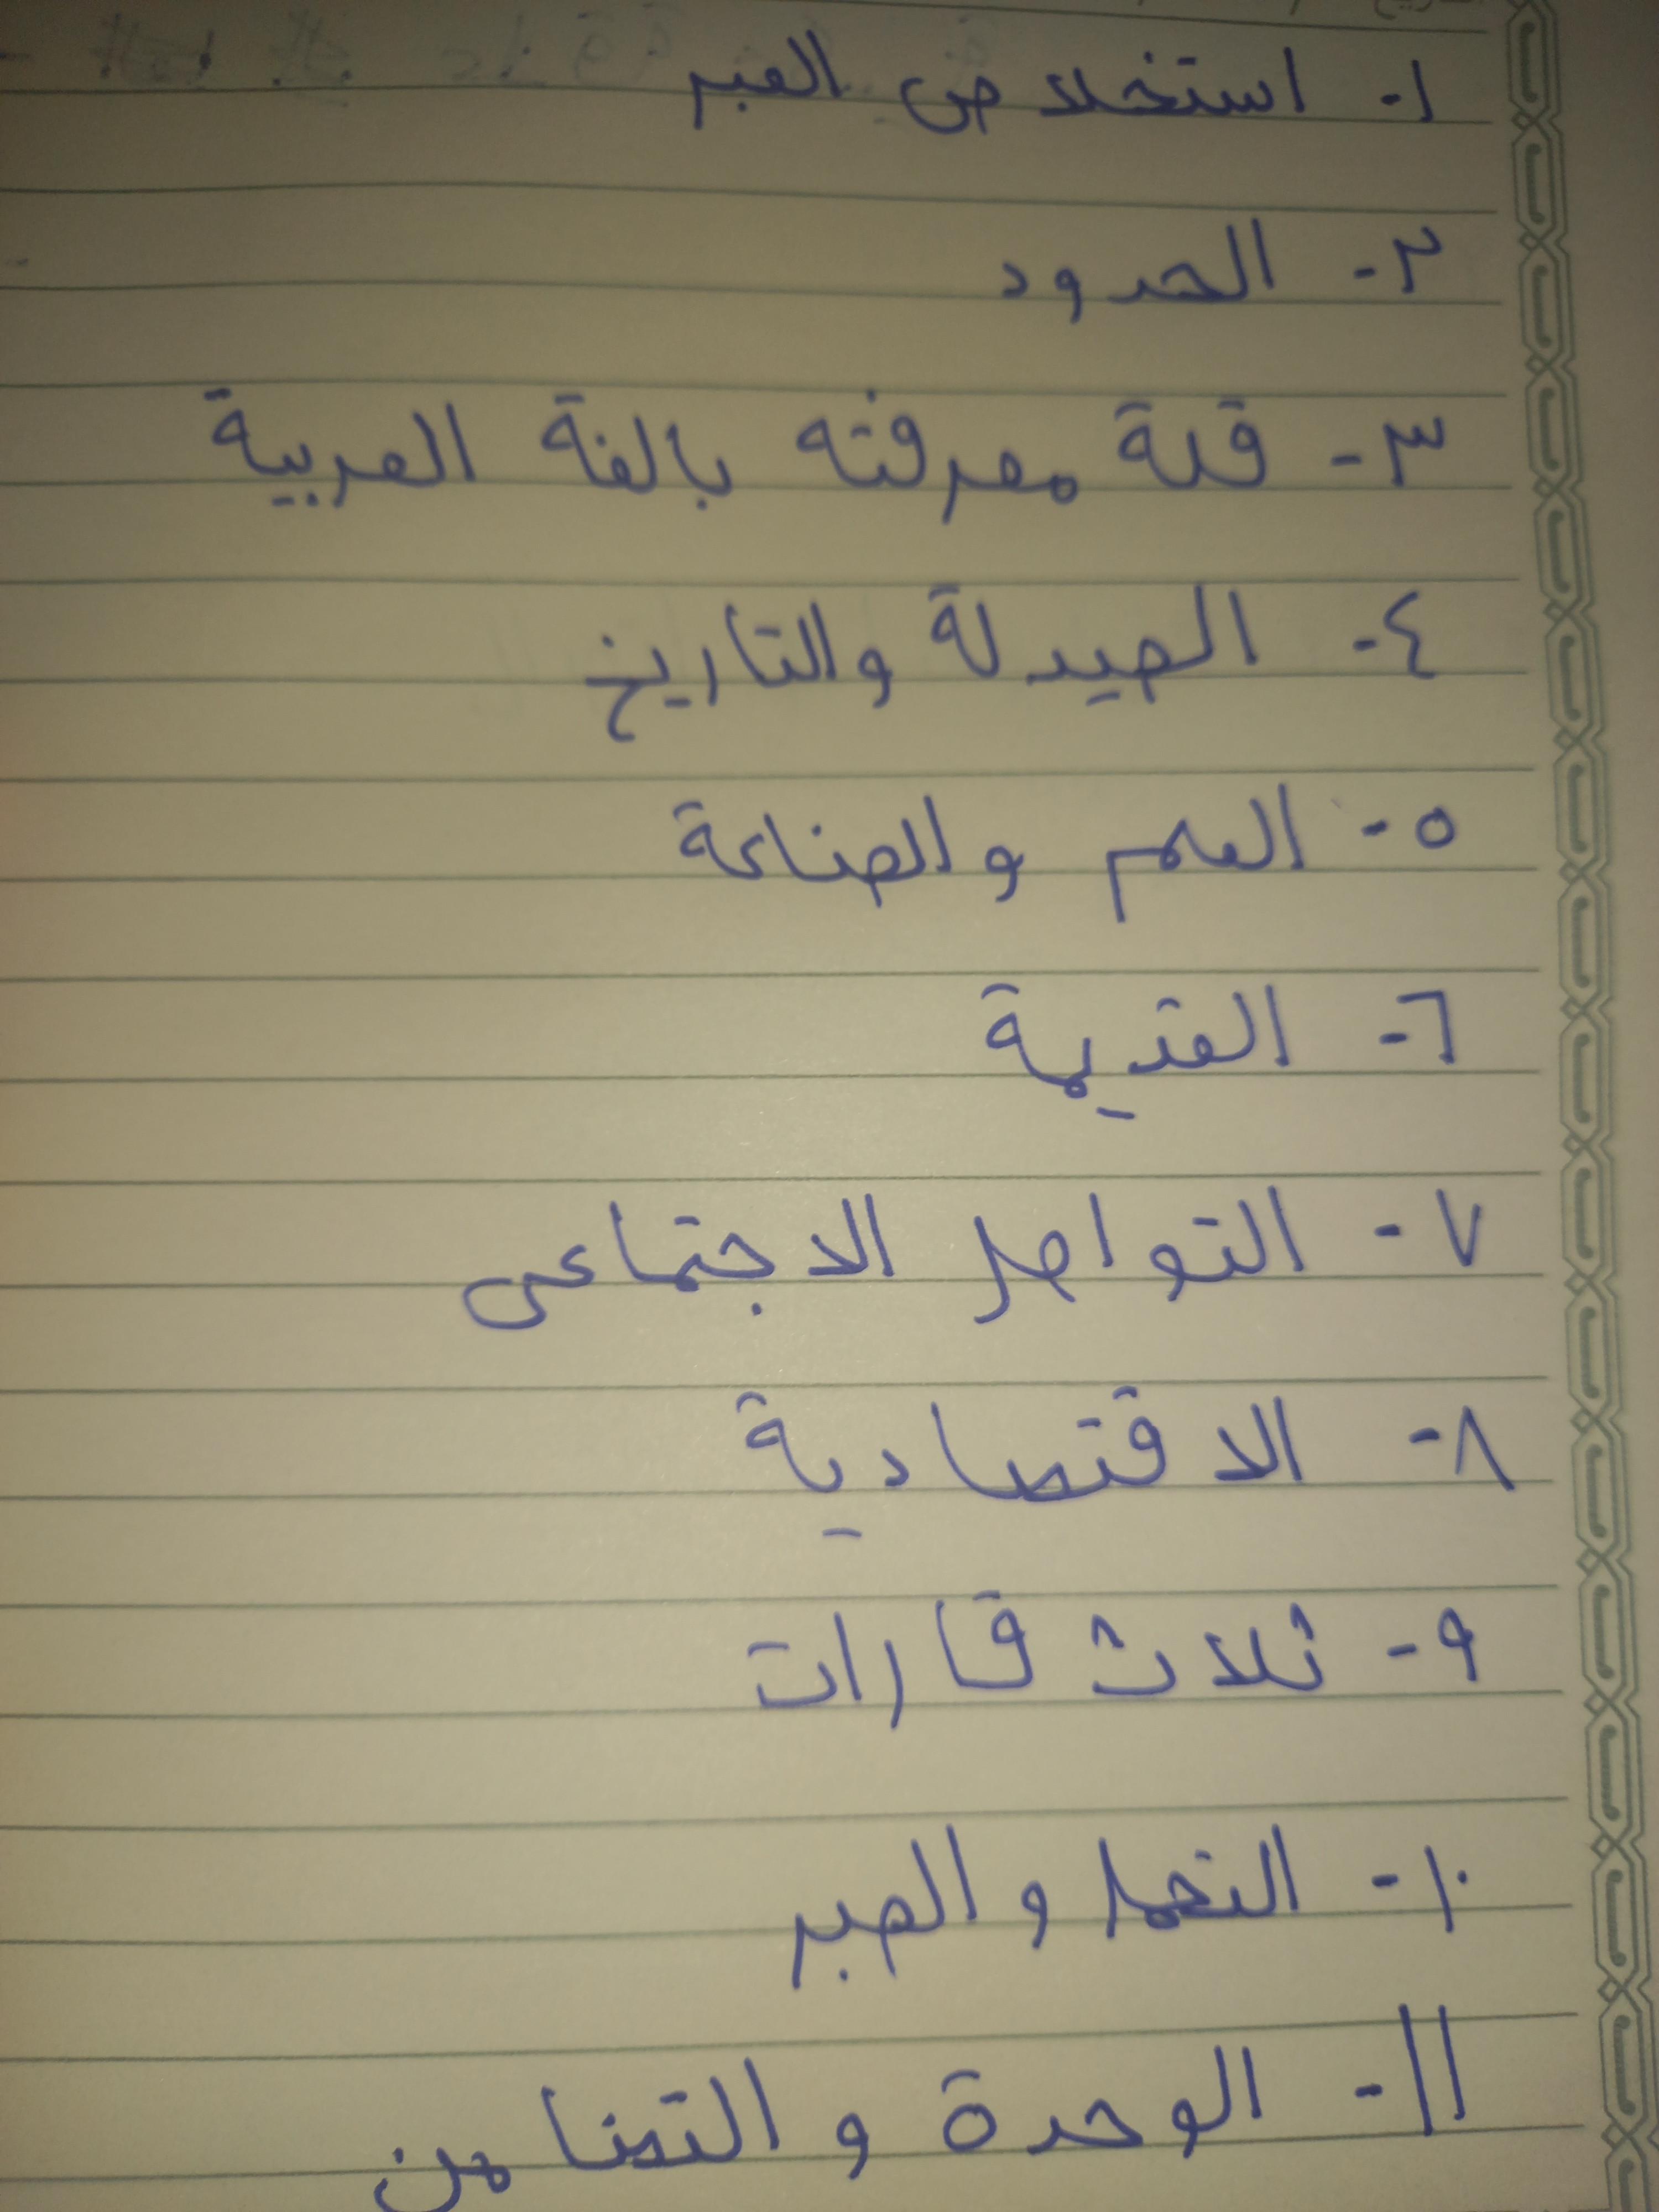 ١- استخلاص العبر
٢- الحدود
٣- قلة معرفته بالغة العربية
٤- الصيدلة والتاريخ
٥- العلم والصناعة
٦- القديمة
٧- التواصل الاجتماعى
٨- الاقتصادية
٩- ثلاث قارات
١٠- التحمل والصبر
١١- الوحدة و التضامن